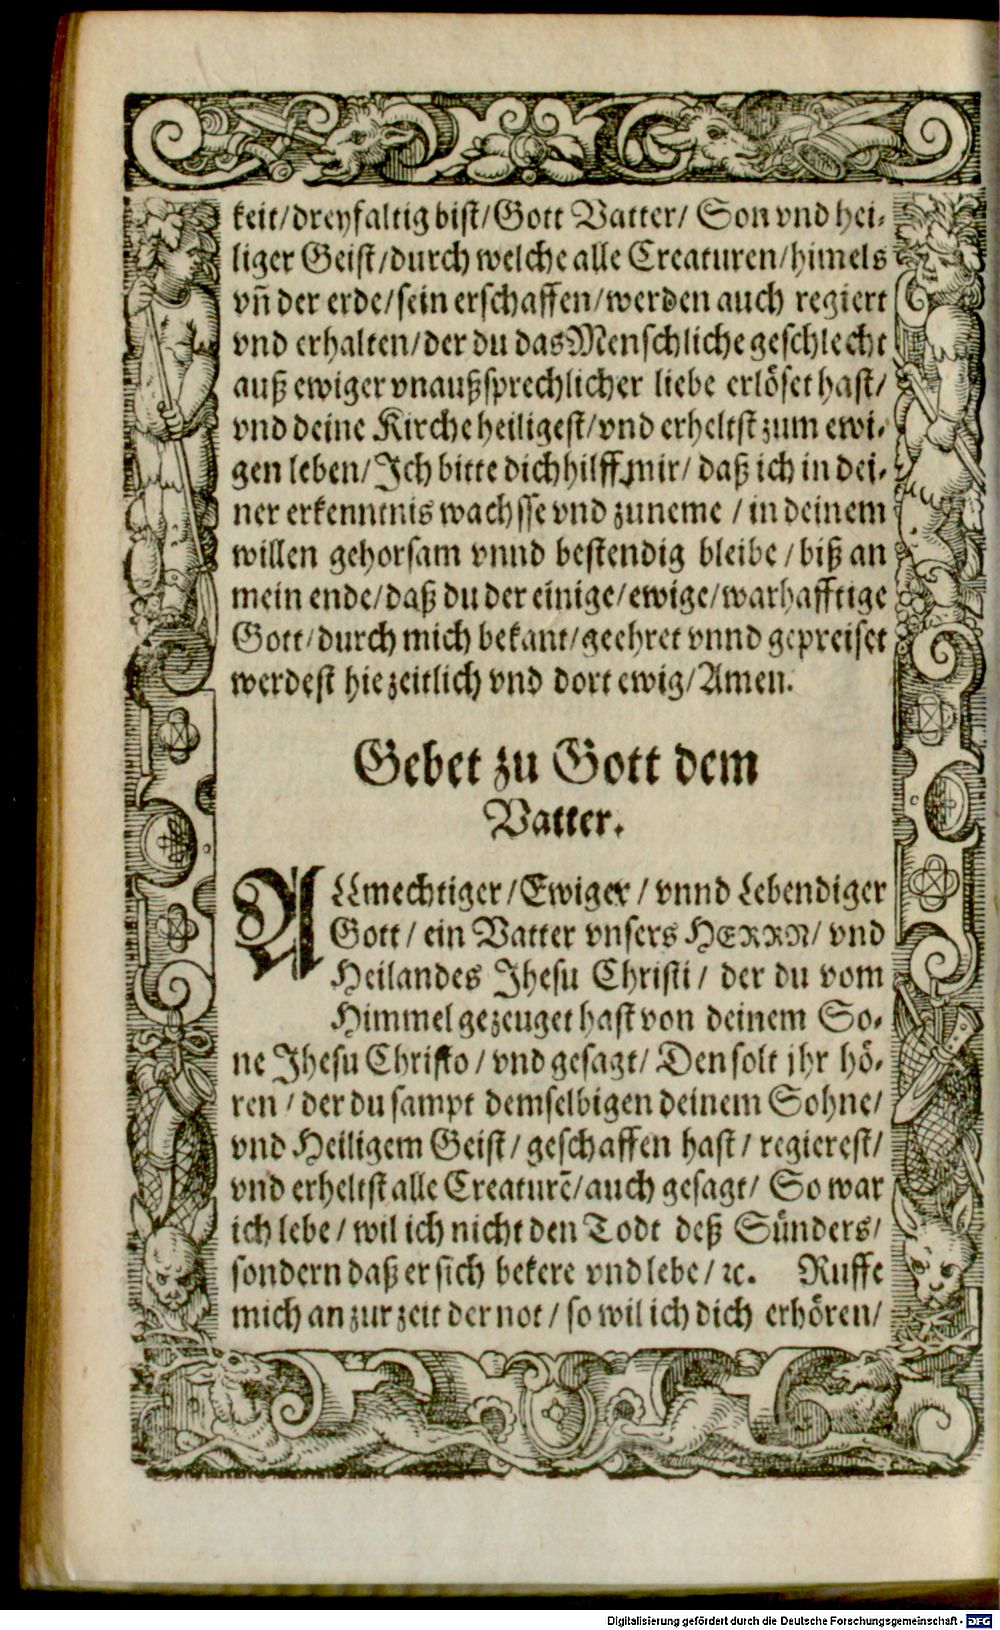 keit/dreyfaltig bist/Gott Vatter/ Son vnd hei-
liger Geist/durch welche alle Creaturen/himels
vn̄ der erde/sein erschaffen/werden auch regiert
vnd erhalten/der du das Menschliche geschlecht
auß ewiger vnaußsprechlicher liebe erlöset hast/
vnd deine Kirche heiligest/vnd erheltst zum ewi-
gen leben/Ich bitte dich hilff mir/ daß ich in dei-
ner erkenntnis wachsse vnd zuneme / in deinem
willen gehorsam vnnd bestendig bleibe / biß an
mein ende/daß du der einige/ewige/warhafftige
Gott/durch mich bekant/geehret vnnd gepreiset
werdest hie zeitlich vnd dort ewig/Amen.
Gebet zu Gott dem
Vatter.
ALlmechtiger /Ewiger / vnnd Lebendiger
Gott/ ein Vatter vnsers HERRN/ vnd
Heilandes Jhesu Christi/ der du vom
Himmel gezeuget hast von deinem So-
ne Jhesu Christo / vnd gesagt/ Den solt jhr hö-
ren / der du sampt demselbigen deinem Sohne/
vnd Heiligem Geist/ geschaffen hast / regierest/
vnd erheltst alle Creaturē/auch gesagt/ So war
ich lebe / wil ich nicht den Todt deß Sünders/
sondern daß er sich bekere vnd lebe/ ꝛc. Ruffe
mich an zur zeit der not / so wil ich dich erhören/
Digitalisierung gefördert durch die Deutsche Forschungsgemeinschaft - DFG